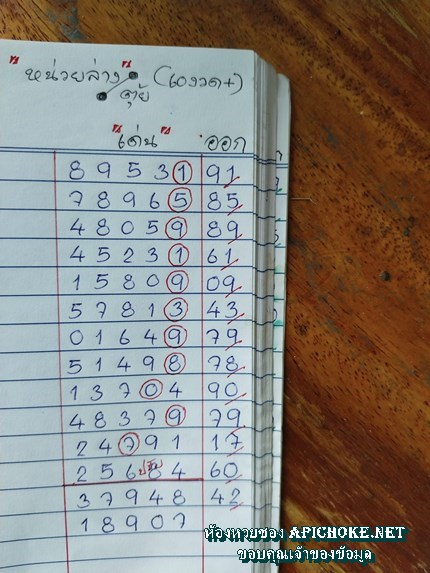 "หน่วยล่าง" (60งวด+)
ตุ้ย
"เด่น" ออก
8 9 5 3 1 91
7 8 9 6 5 85
4 8 0 5 9 89
4 5 2 3 1 61
1 5 8 0 9 09
5 7 8 1 3 43
0 1 6 4 9 79
5 1 4 9 8 78
1 3 7 0 4 90
4 8 3 7 9 79
2 4 7 9 1 17
2 5 6 8 4 60
3 7 9 4 8 42
1 8 9 0 7
ห้องหวยซอง APICHOKE.NET
ขอบคุณเจ้าของข้อมูล